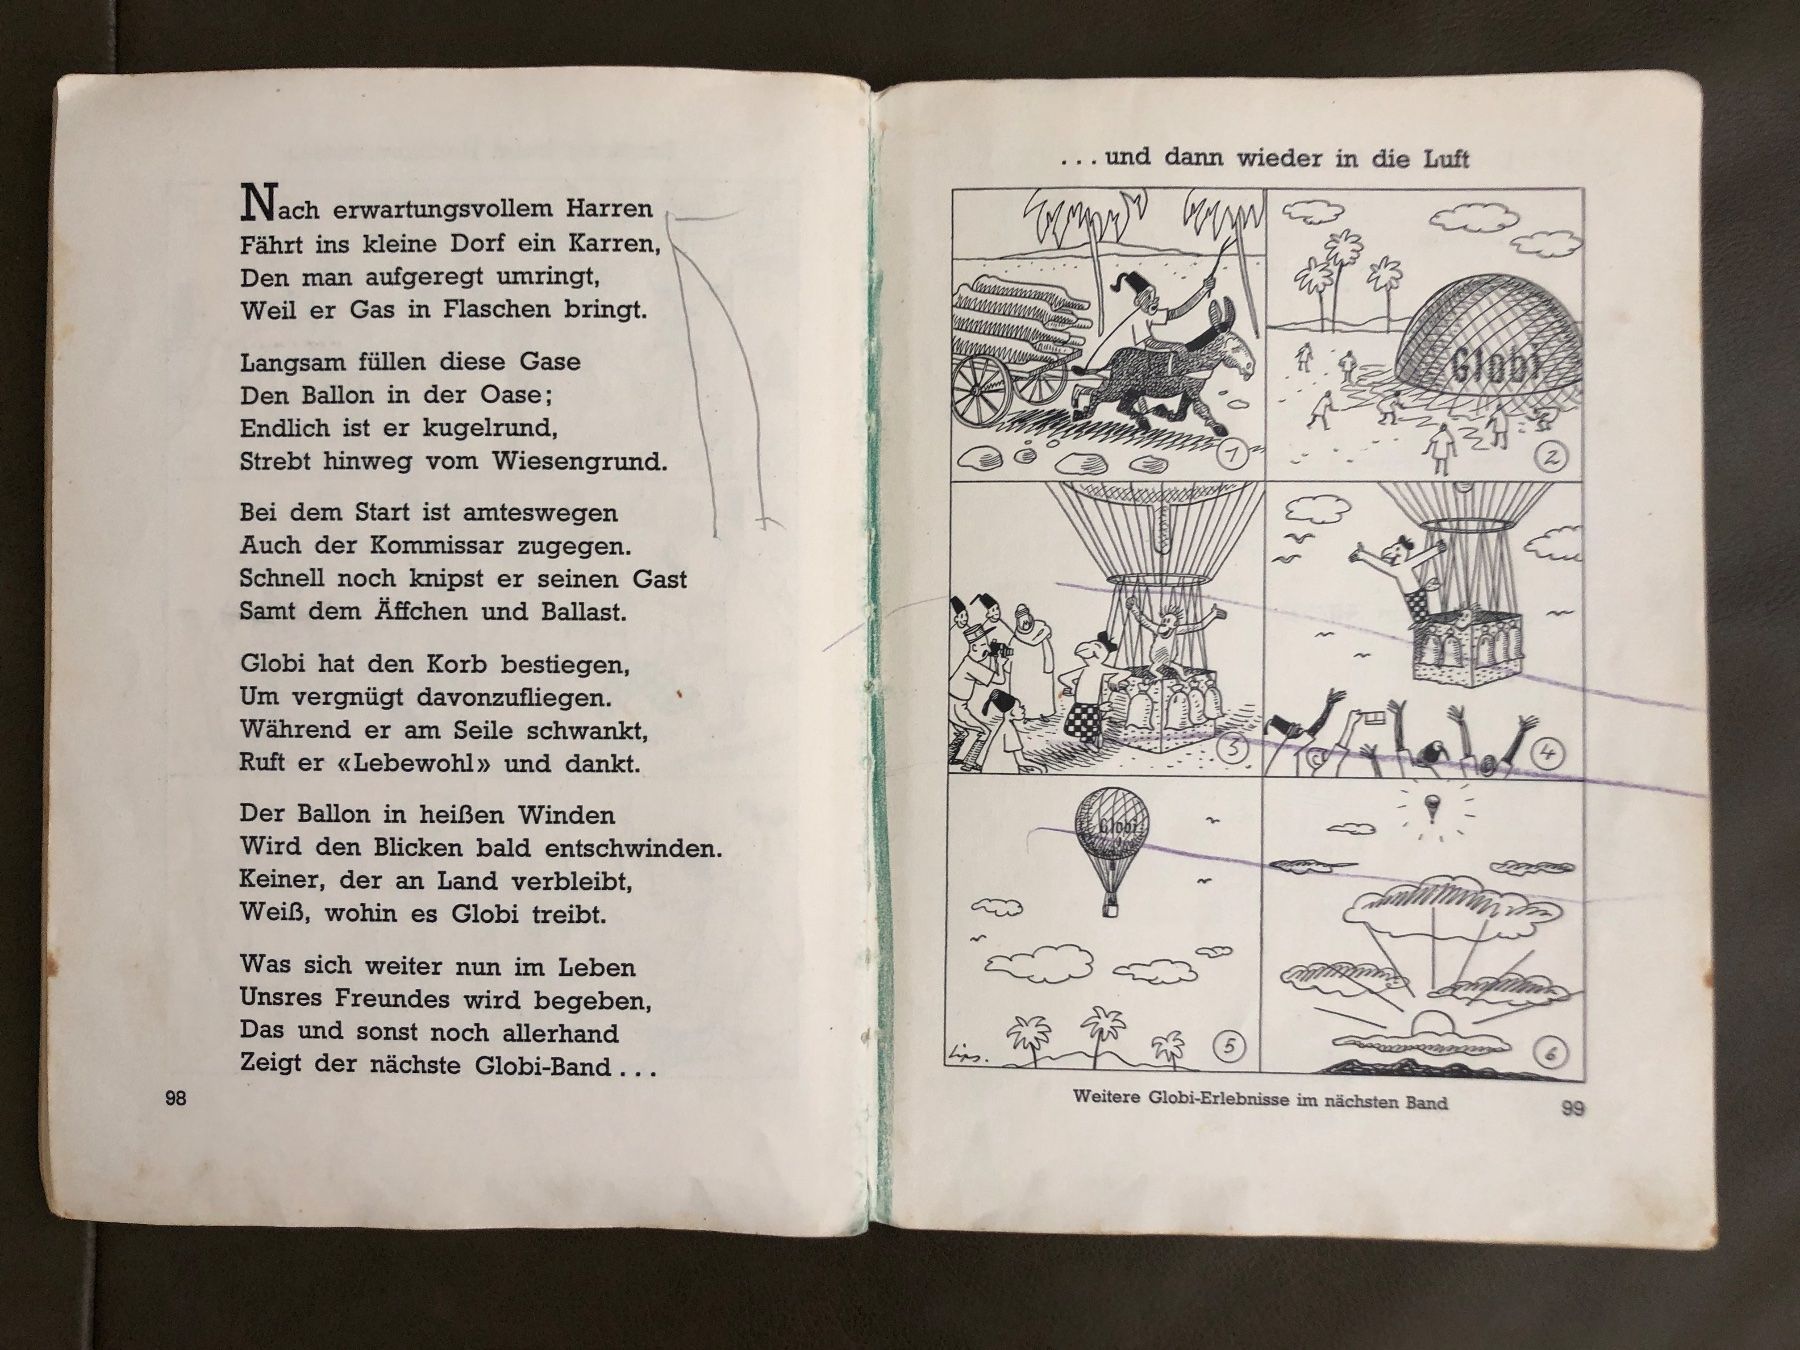 Nach erwartungsvollem Harren
Fährt ins kleine Dorf ein Karren,
Den man aufgeregt umringt,
Weil er Gas in Flaschen bringt.
Langsam füllen diese Gase
Den Ballon in der Oase;
Endlich ist er kugelrund,
Strebt hinweg vom Wiesengrund.
Bei dem Start ist amteswegen
Auch der Kommissar zugegen.
Schnell noch knipst er seinen Gast
Samt dem Äffchen und Ballast.
Globi hat den Korb bestiegen,
Um vergnügt davonzufliegen.
Während er am Seile schwankt,
Ruft er «Lebewohl» und dankt.
Der Ballon in heißen Winden
Wird den Blicken bald entschwinden.
Keiner, der an Land verbleibt,
Weiß, wohin es Globi treibt.
Was sich weiter nun im Leben
Unsres Freundes wird begeben,
Das und sonst noch allerhand
Zeigt der nächste Globi-Band...
98
...und dann wieder in die Luft
1
Globi
2
3
4
Globi
Lips.
5
6
Weitere Globi-Erlebnisse im nächsten Band
99